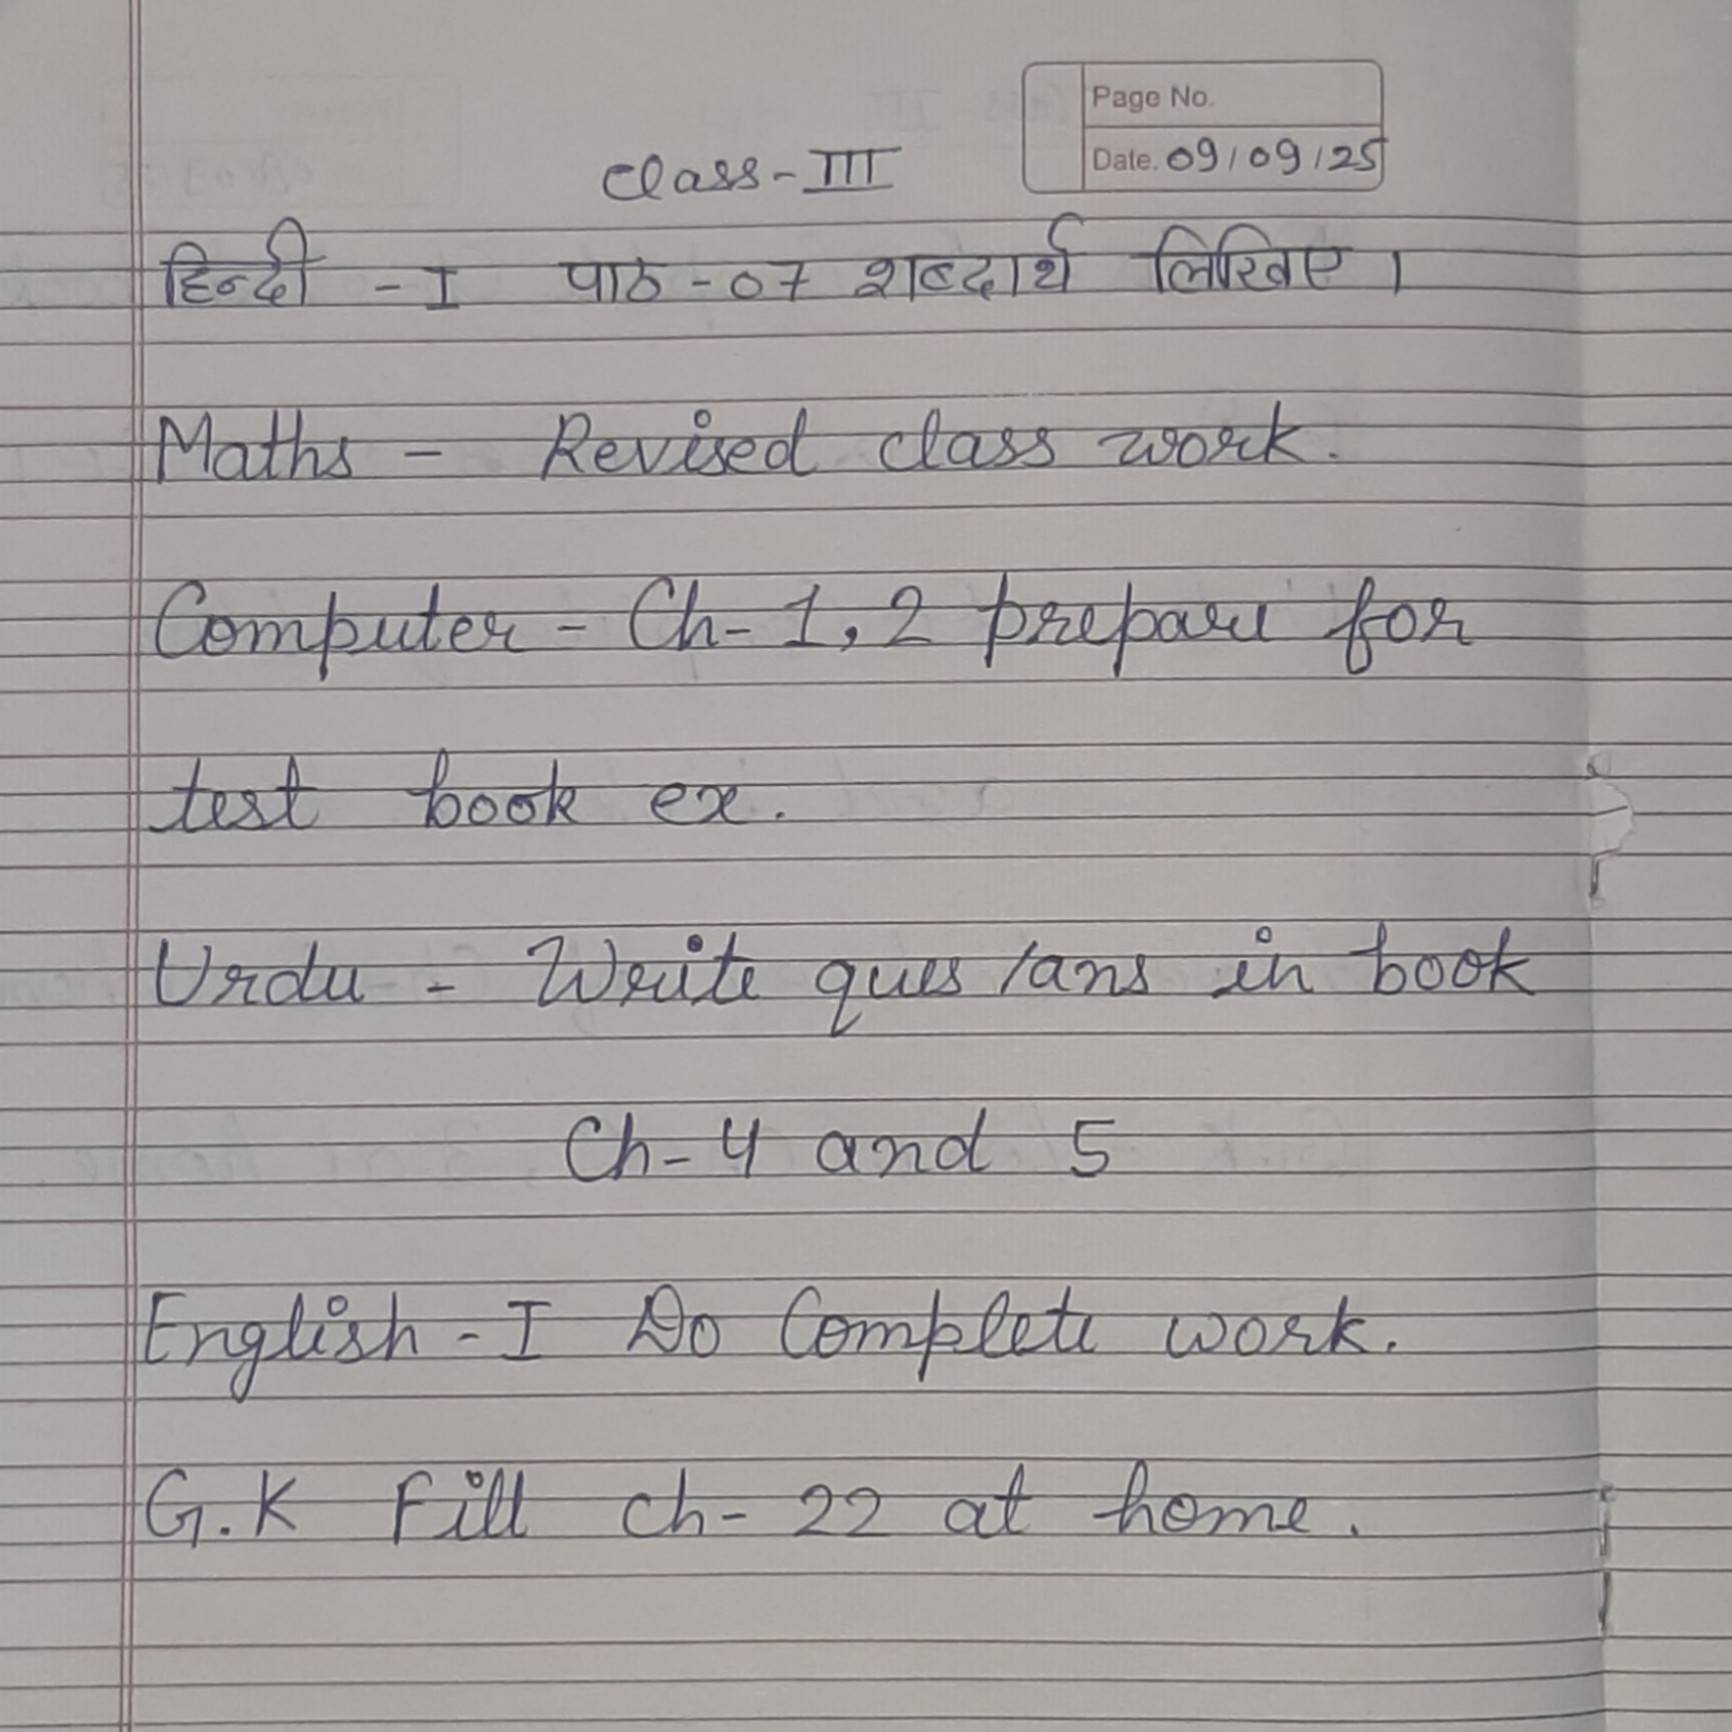 Page No.
Class-III
Date. 09/09/25
हिन्दी - I पाठ-07 शब्दार्थ लिखिए।
Maths - Revised class work.
Computer - Ch-1,2 prepare for
test book ex.
Urdu - Write ques/ans in book
Ch-4 and 5
English-I Do Complete work.
G.K Fill ch-22 at home.